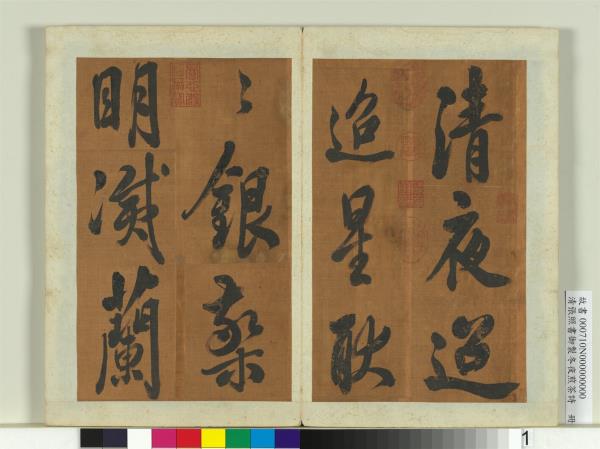 清夜迢
迢星耿
〻銀檠
明滅蘭
故書 000710N00000000
清張照書御製冬夜煎茶詩 冊
1